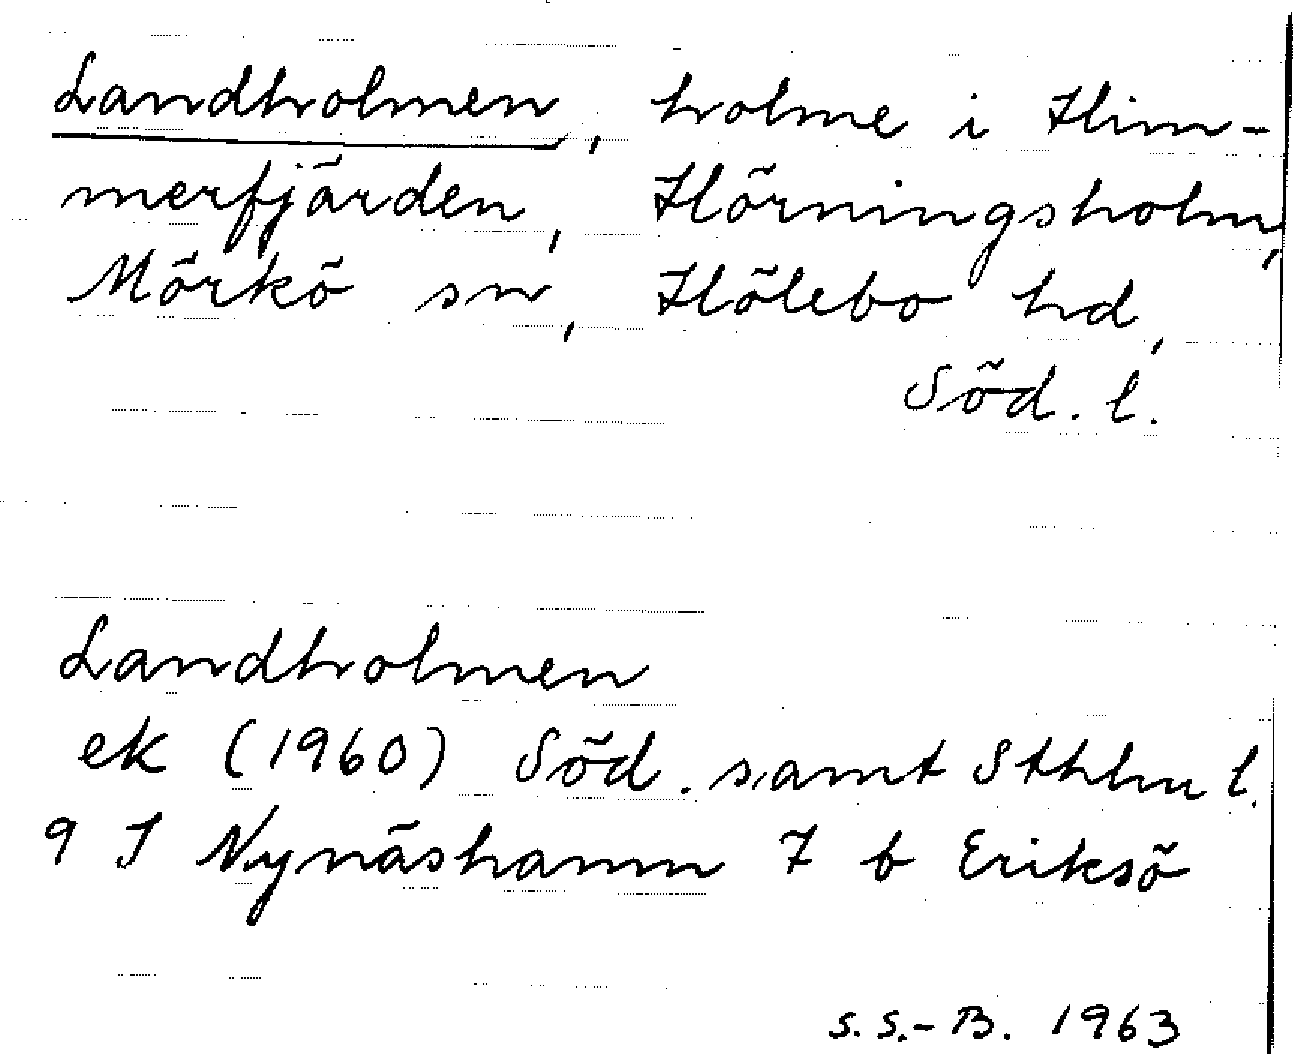 Landholmen, holme i Him-
merfjärden, Hörningsholm,
Mörkö sn, Hölebo hd,
Söd. l.
Landholmen
ek (1960) Söd. samt Sthlm l.
9 I Nynäshamn 7 b Eriksö
S.S.-B. 1963